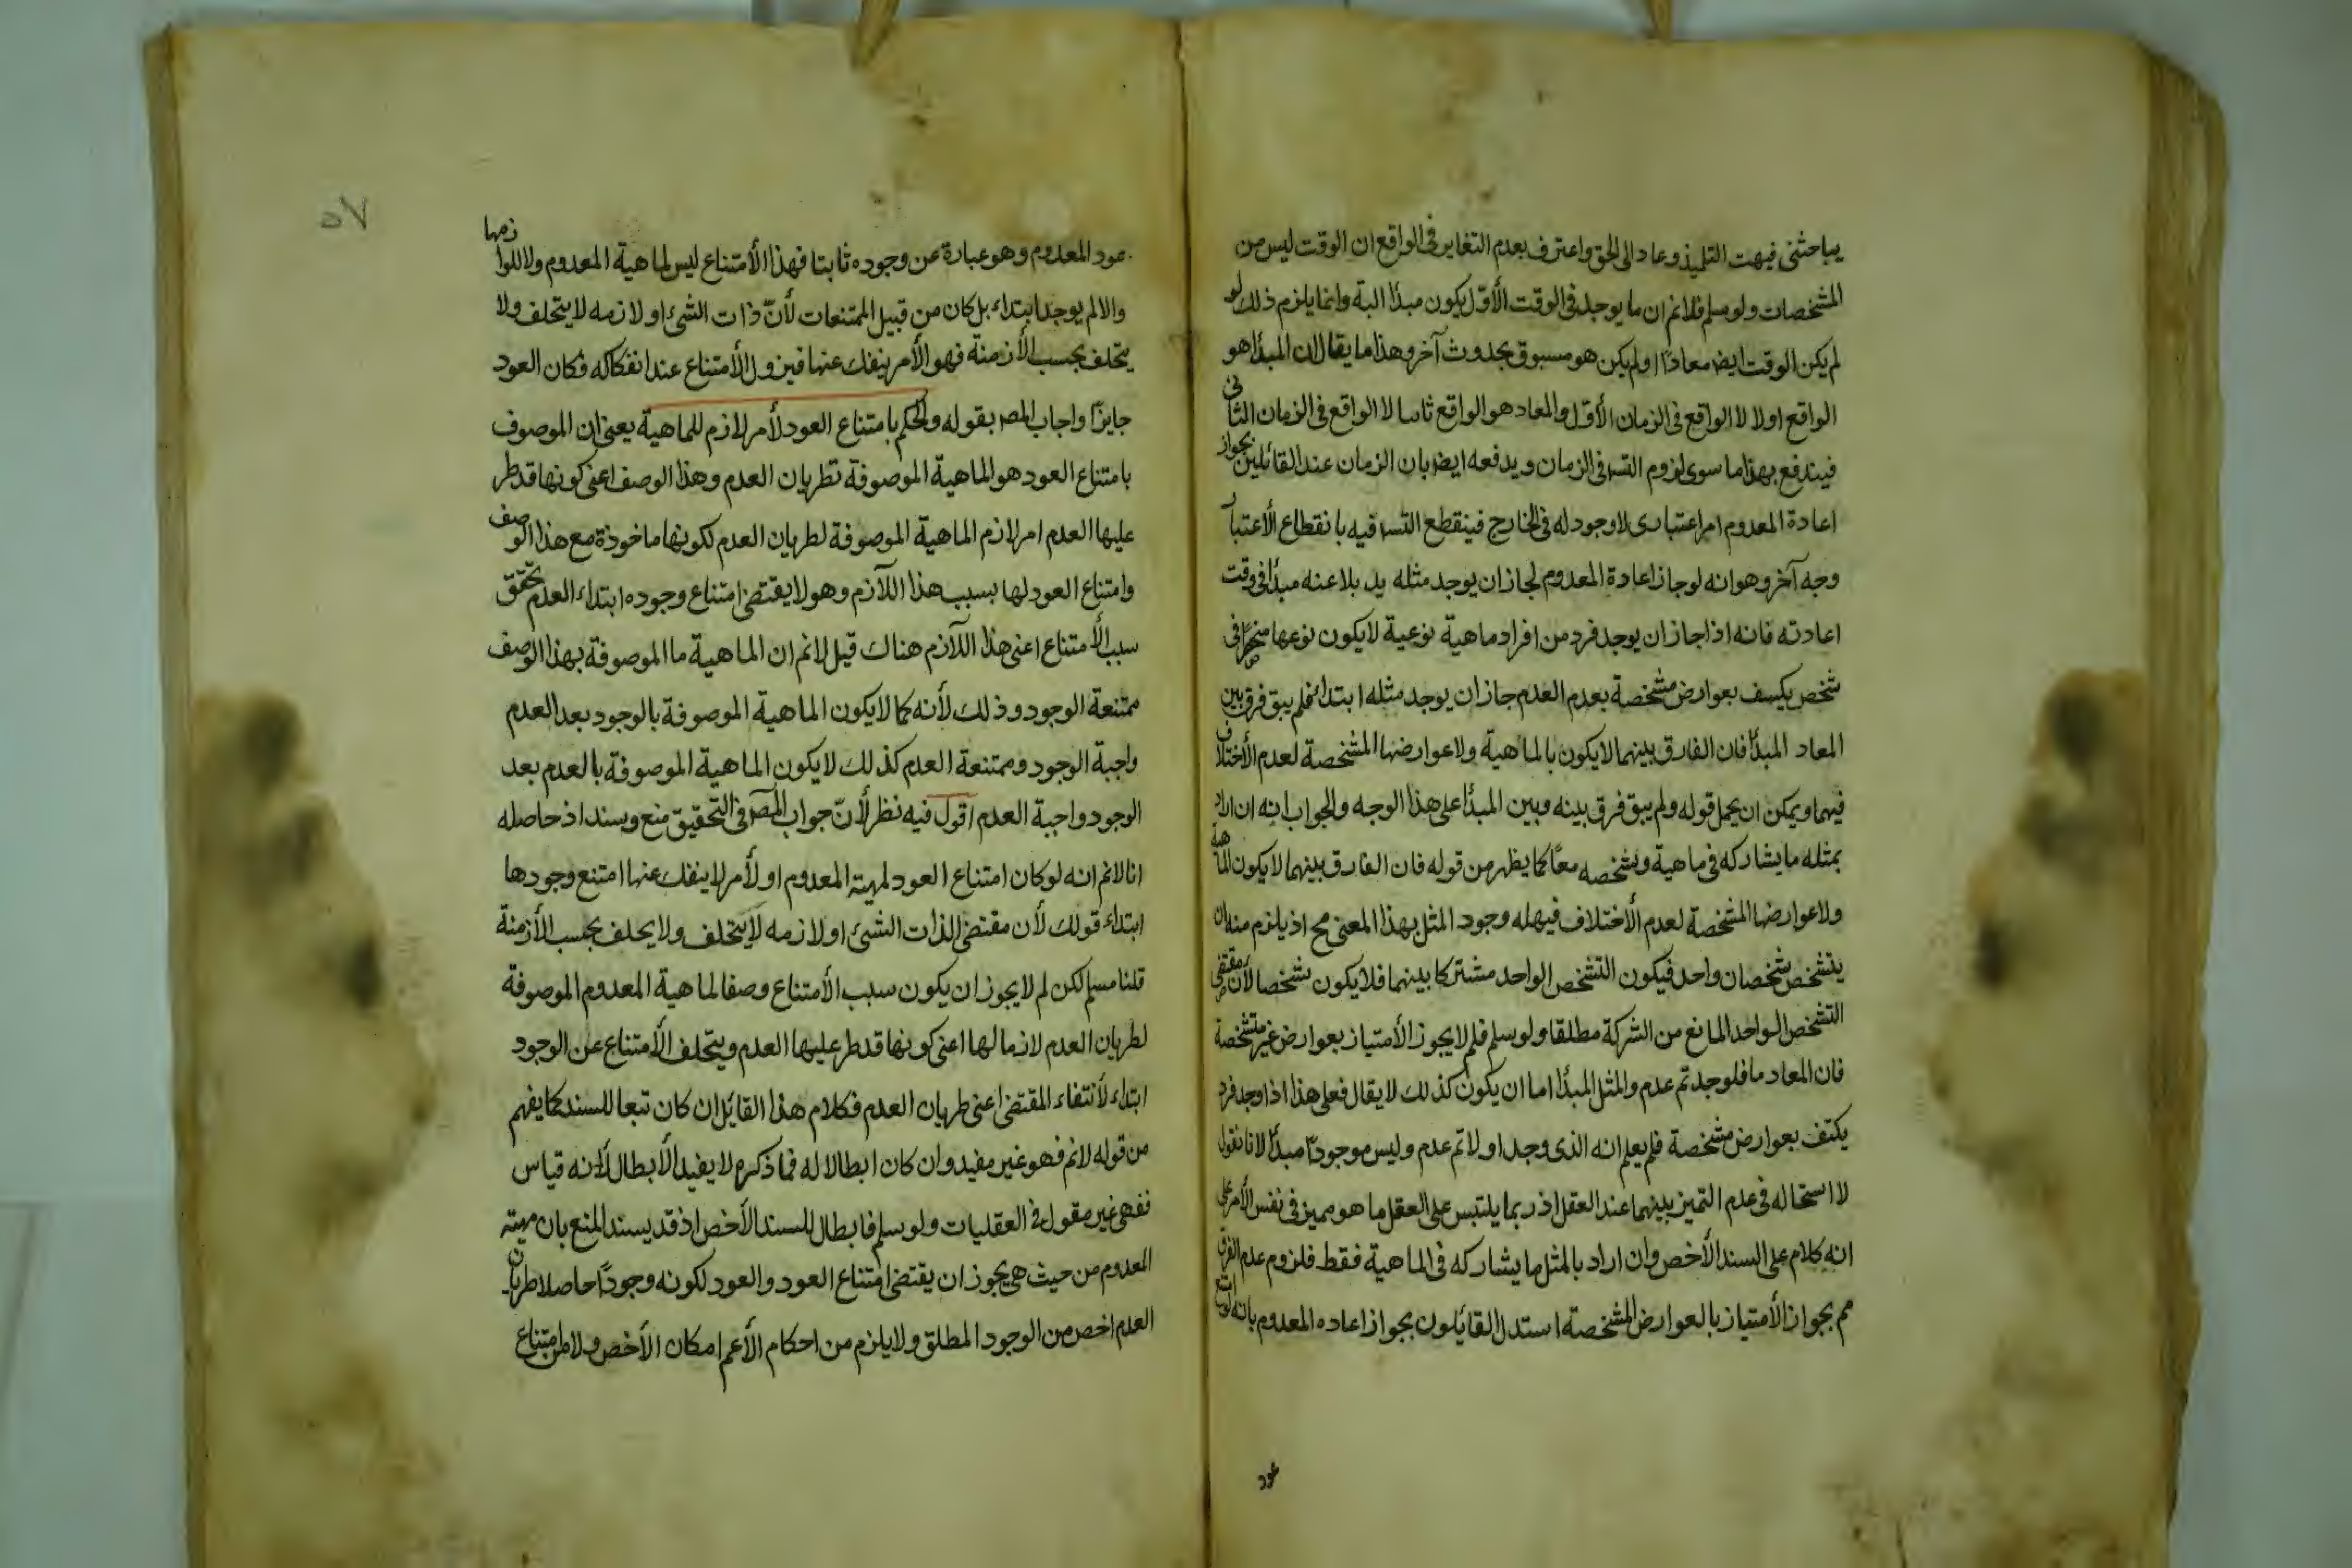 يباحثنى فبهت التلميذ وعاد الى الحق واعترف بعدم التغاير فى الواقع ان الوقت ليس من
المشخصات ولو سلم فلانم ان ما يوجد فى الوقت الأوّل يكون مبدأ البة وانما يلزم ذلك لو
لم يكن الوقت ايض معادًا او لم يكن هو مسبوق بحدوث آخر وهذا ما يقال ان المبدأ هو
الواقع اولا لا الواقع فى الزمان الأوّل والمعاد هو الواقع ثانيا لا الواقع فى الزمان الثانى
فيندفع بهذا ما سوى لزوم التسـ فى الزمان ويدفعه ايضا بان الزمان عند القائلين بجواز
اعادة المعدوم امر اعتبارى لا وجود له فى الخارج فينقطع التسـ فيه بانقطاع الأعتبار
وجه آخر وهو انه لو جاز اعادة المعدوم لجاز ان يوجد مثله بد بلا عنه مبدأ فى وقت
اعادته فانه اذا جاز ان يوجد فرد من افراد ماهية نوعية لا يكون نوعها منحصرًا فى
شخص يكسف بعوارض مشخصة بعدم العدم جاز ان يوجد مثله ابتداء فلم يبق فرق بين
المعاد المبدأ فان الفارق بينهما لا يكون بالماهية ولا عوارضها المشخصة لعدم الأختلاف
فيهما ويمكن ان يحمل قوله ولم يبق فرق بينه وبين المبدأ على هذا الوجه والجواب انه ان اراد
بمثله ما يشاركه فى ماهية وتشخصه معًا كما يظهر من قوله فان الفارق بينهما لا يكون الماهية
ولا عوارضها المشخصة لعدم الأختلاف فيهما له وجود المثل بهذا المعنى مح اذ يلزم منه ان
يتشخص شخصان واحد فيكون التشخص الواحد مشتركا بينهما فلا يكون تشخصا لأن مقتضى
التشخص الواحد المانع من الشركة مطلقا ولو سلم فلم لا يجوز الأمتياز بعوارض غير متشخصة
فان المعاد ما فلو وجد ثم عدم والمثل المبدأ اما ان يكون كذلك لا يقال فعلى هذا اذا وجد فرد
يكتف بعوارض مشخصة فلم يعلم انه الذى وجد اولا ثم عدم وليس موجودًا مبدأ لانا نقول
لا استحاله فى عدم التميز بينهما عند العقل اذ ربما يلتبس على العقل ما هو مميز فى نفس الأمر على
انه كلام على السند الأخص وان اراد بالمثل ما يشاركه فى الماهية فقط فلزوم عدم الفرق
مم بجواز الأمتياز بالعوارض المشخصة استدل القائلون بجواز اعاده المعدوم بانه لو امتنع
عود
٥٧
عود المعدوم وهو عبارة عن وجوده ثابتا فهذا الأمتناع ليس لماهية المعدوم ولا للوازمها
والا لم يوجد ابتداء بل كان من قبيل الممتنعات لأنّ ذات الشئ او لازمه لا يتخلف ولا
يتخلف بحسب الأزمنة فهو الأمر ينفك عنها فيزول الأمتناع عند انفكاكه فكان العود
جايزًا واجاب المصـ بقوله والحكم بامتناع العود لأمر لازم للماهية يعنى ان الموصوف
بامتناع العود هو الماهية الموصوفة بطريان العدم وهذا الوصف اعنى كونها قد طر
عليها العدم امر لازم الماهية الموصوفة لطريان العدم لكونها ماخوذة مع هذا الوصف
وامتناع العود لها بسبب هذا اللآزم وهو لا يقتضى امتناع وجوده ابتداء العدم تحقق
سبب الأمتناع اعنى هذا اللآزم هناك قيل لانم ان الماهية ما الموصوفة بهذا الوصف
ممتنعة الوجود وذلك لأنه كما لا يكون الماهية الموصوفة بالوجود بعد العدم
واجبة الوجود وممتنعة العدم كذلك لا يكون الماهية الموصوفة بالعدم بعد
الوجود واجبة العدم اقول فيه نظر لأنّ جواب المصـ فى التحقيق منع وسند اذ حاصله
انا لانم انه لو كان امتناع العود لمهية المعدوم او لأمر لا ينفك عنها امتنع وجودها
ابتداء قولك لأن مقتضى الذات الشئ او لازمه لا يتخلف ولا يخلف بحسب الأزمنة
قلنا مسلم لكن لم لا يجوز ان يكون سبب الأمتناع وصفا لماهية المعدوم الموصوفة
لطريان العدم لازما لها اعنى كونها قد طر عليها العدم ويتخلف الأمتناع عن الوجود
ابتداء لأنتفاء المقتضى اعنى طريان العدم فكلام هذا القائل ان كان تبعا للسند كما يفهم
من قوله لانم فهو غير مفيد وان كان ابطالا له فما ذكره لا يفيد الأبطال لأنه قياس
فقهى غير مقول فى العقليات ولو سلم فابطال للسند الأخص اذ قد يسند المنع بان مهية
المعدوم من حيث هى يجوز ان يقتضى امتناع العود والعود لكونه وجودًا حاصلا طريان
العدم اخص من الوجود المطلق ولا يلزم من احكام الأعم امكان الأخص ولا من امتناع